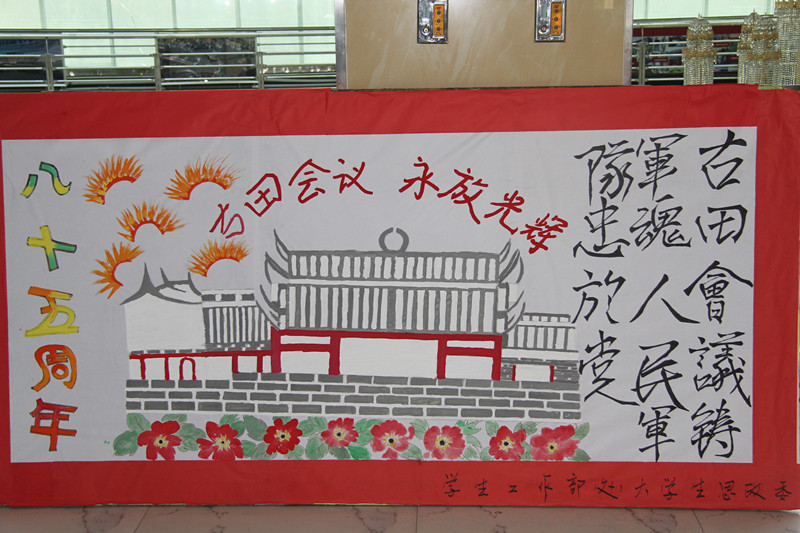 古田会议 永放光辉
八十五周年
古田會議鋳
軍魂人民軍
隊忠於党
学生工作部处大学生思政委